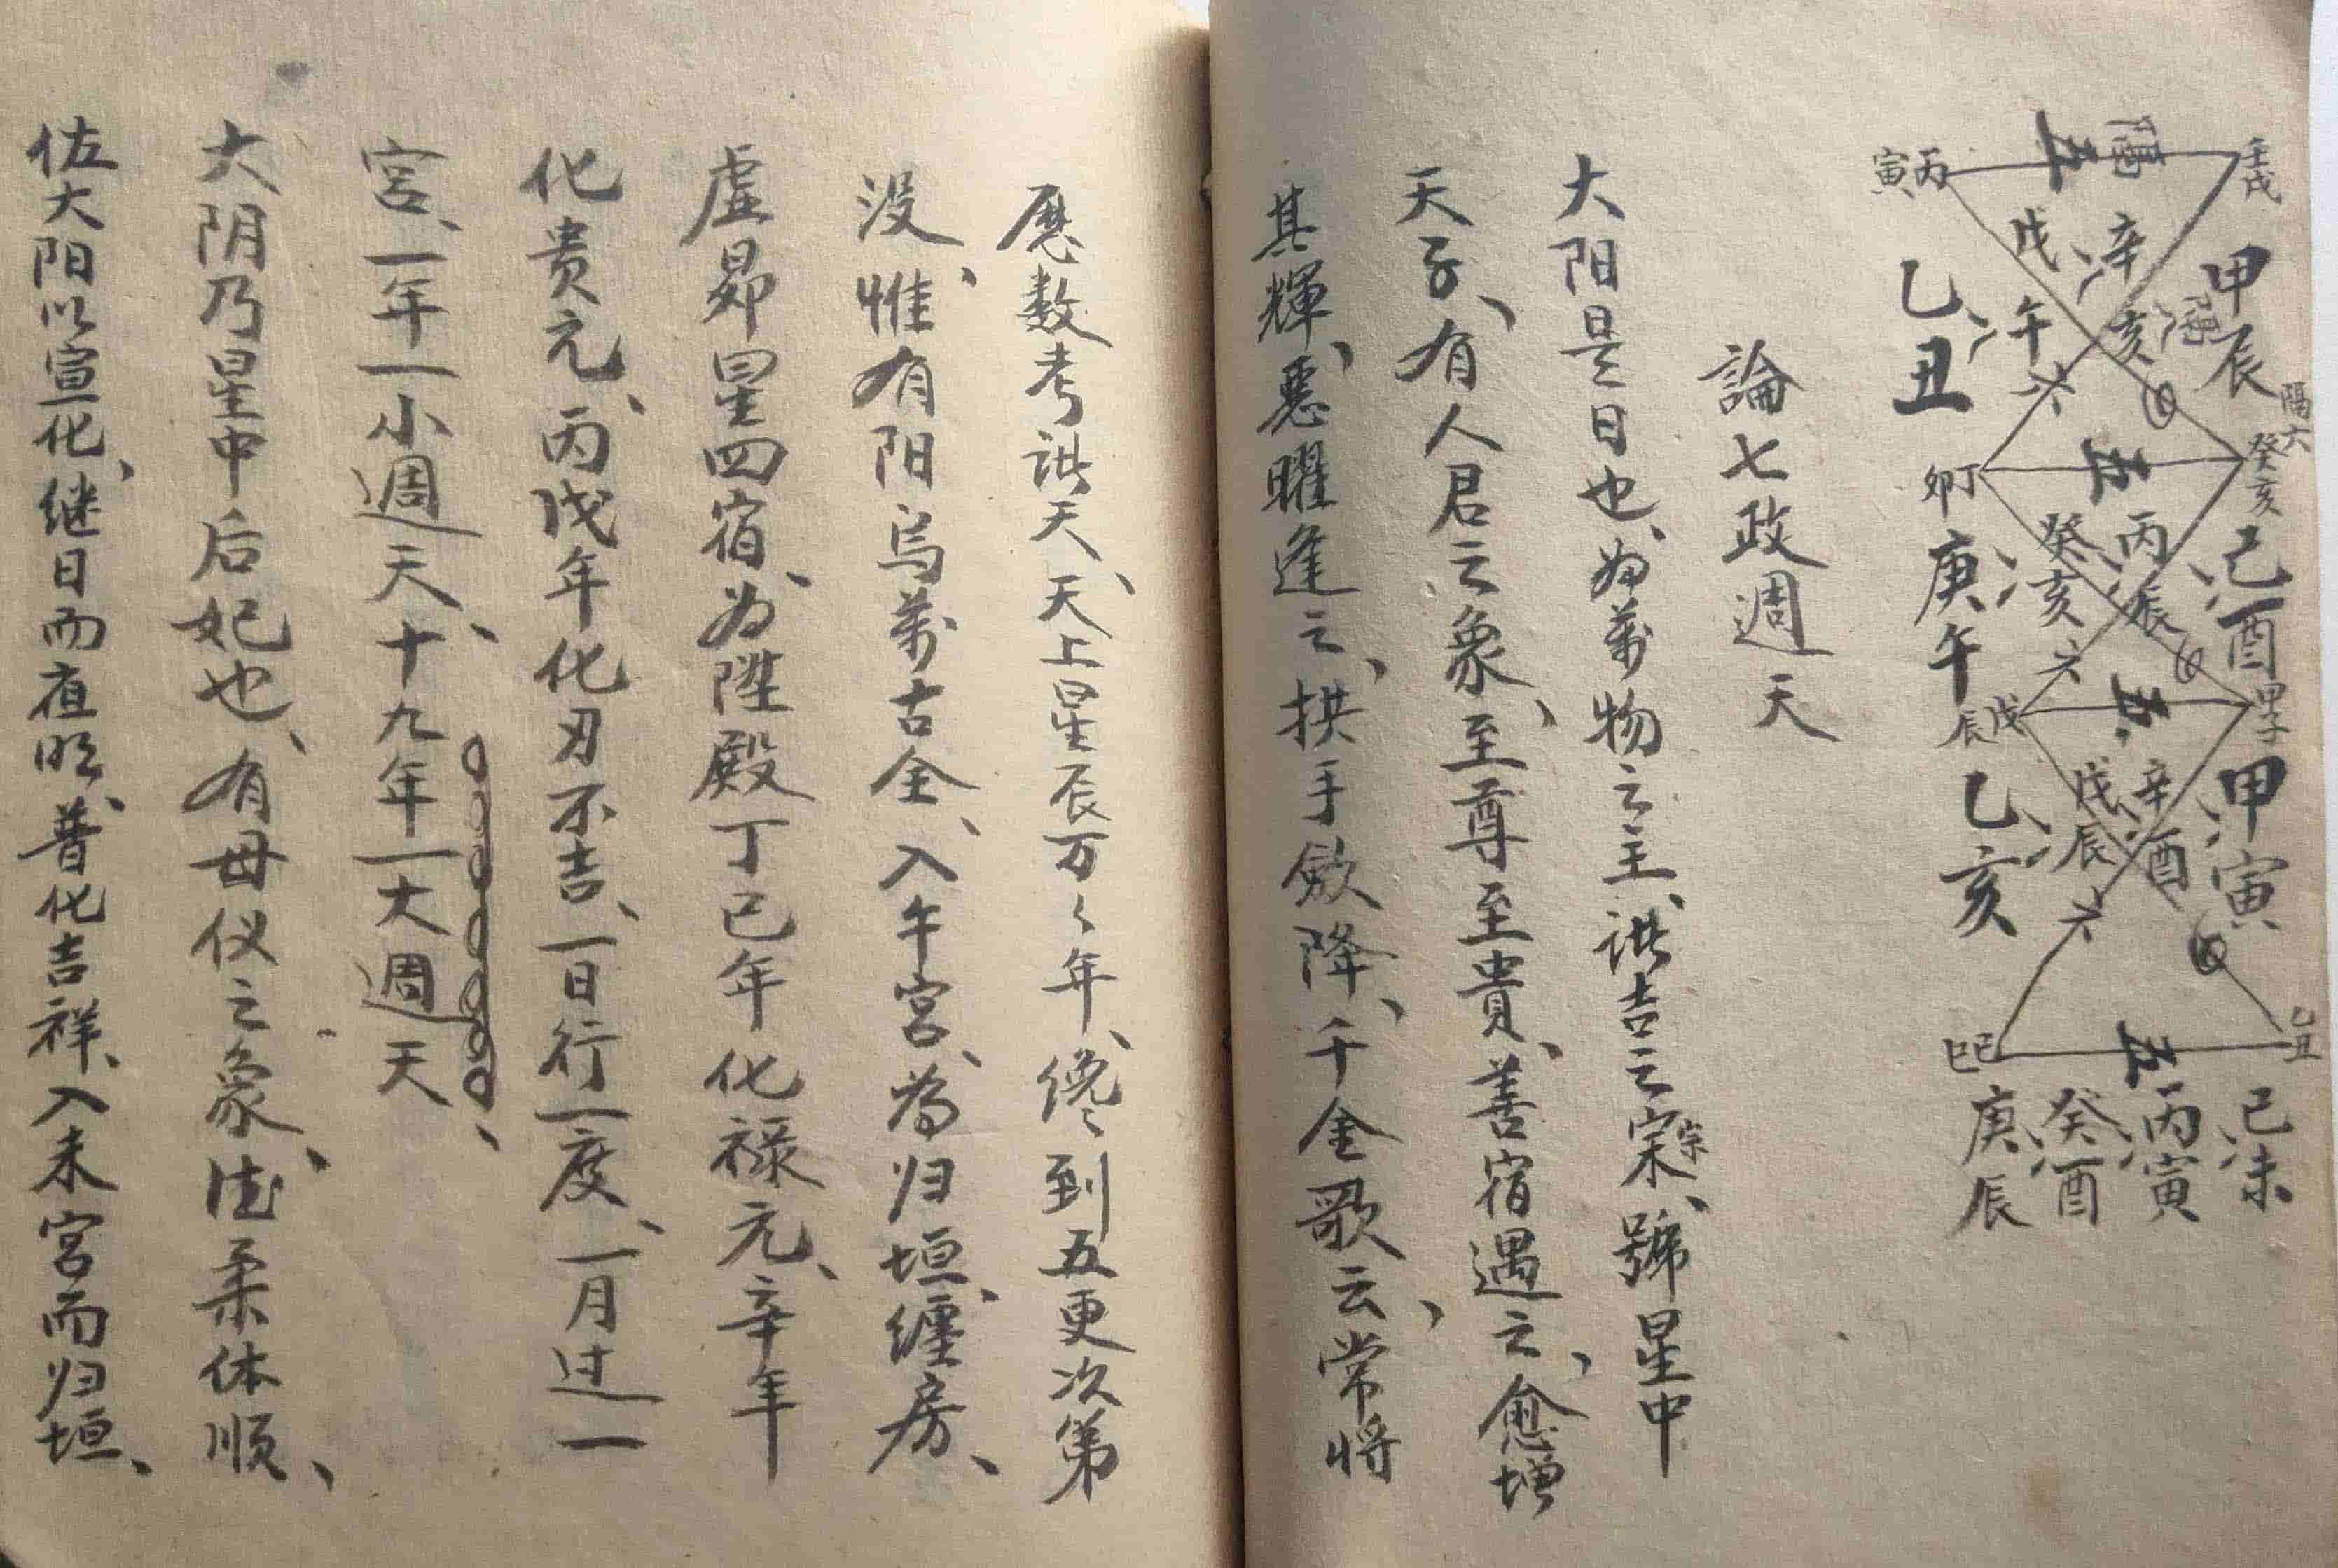 壬戌
隔
五
丙寅
甲辰
隔六
辛亥
戊午
六
乙丑
癸亥
五
丁卯
己酉
丙辰
癸亥
六
庚午
甲子
五
戊辰
甲寅
辛酉
戊辰
六
乙亥
乙丑
五
己巳
己未
丙寅
癸酉
庚辰
論七政週天
大阳是日也、为萬物之主、諸吉之宗、號星中
天子、有人君之象、至尊至貴、善宿遇之、愈增
其輝、惡曜逢之、拱手斂降、千金歌云、常將
歷数考諸天、天上星辰万々年、纔到五更次第
没、惟有阳烏萬古全、入午宮、為归垣、缠房、
虛昴星四宿、为陞殿丁巳年化禄元、辛年
化贵元、丙戊年化刃不吉、一日行一度、一月过一
宮、一年一小週天、十九年一大週天、
大阴乃星中后妃也、有母仪之象、德柔体順、
佐大阳以宣化、继日而夜明、普化吉祥、入未宮而归垣、